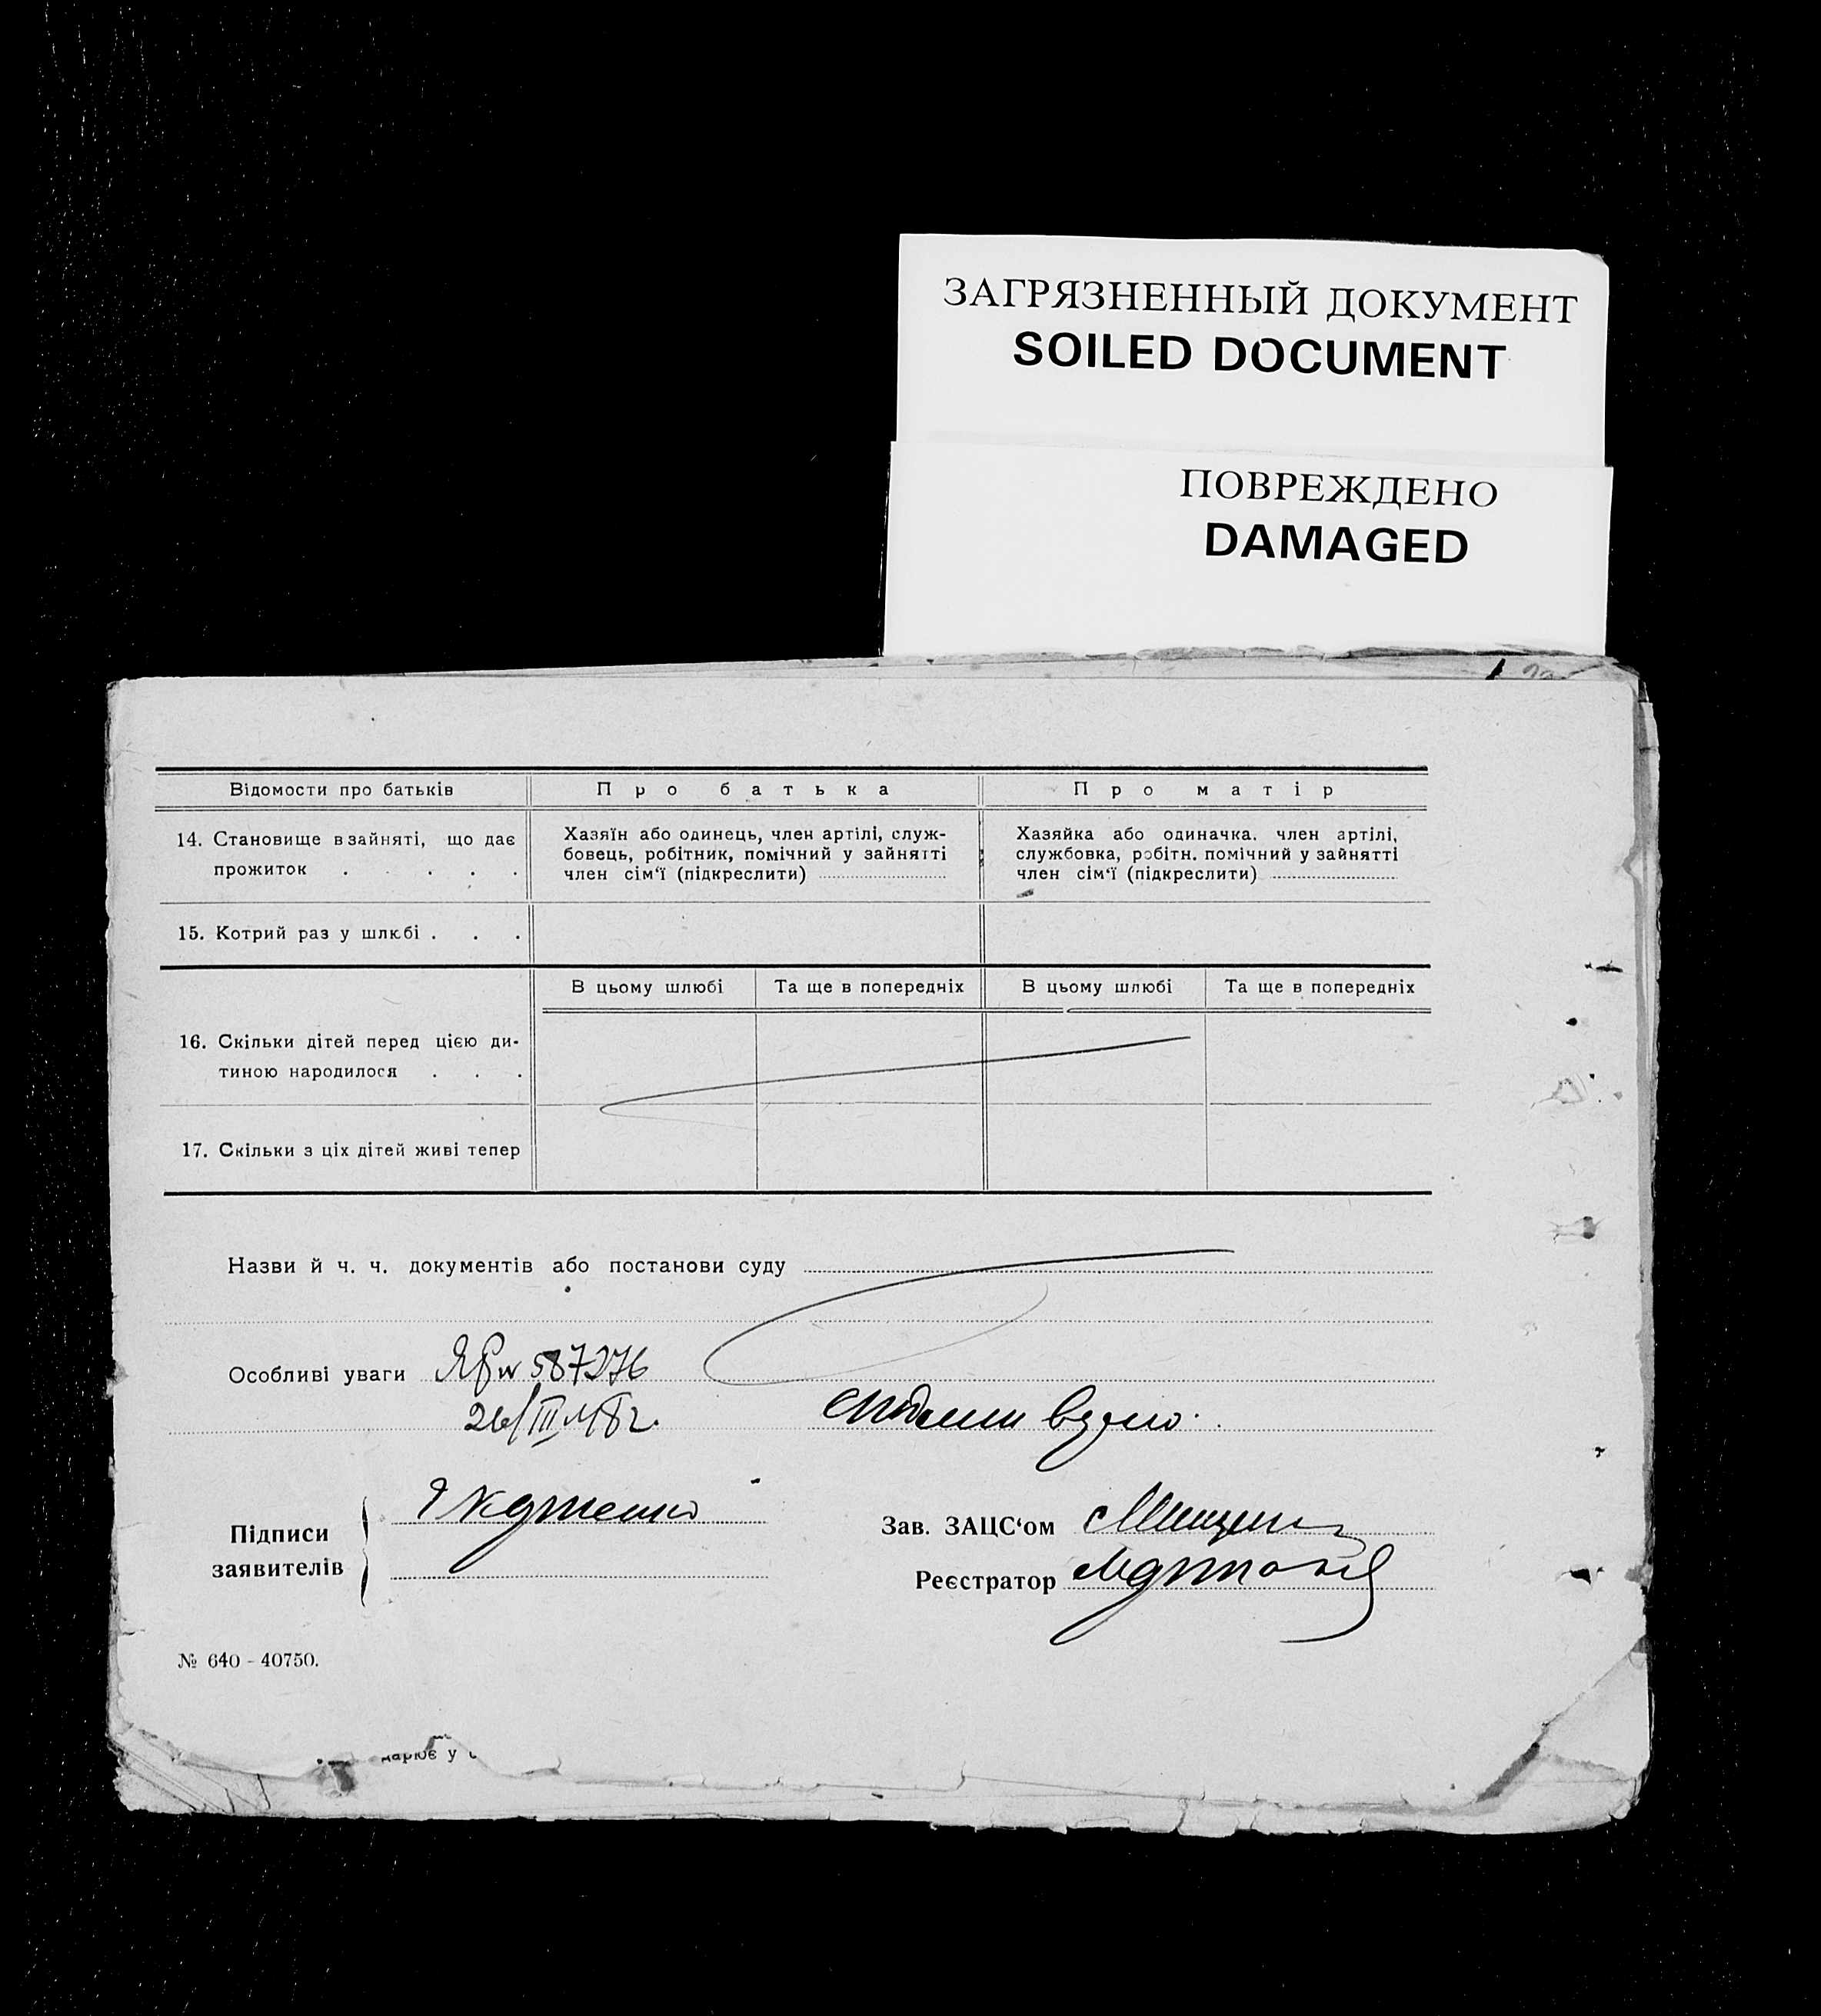 ЗАГРЯЗНЕННЫЙ ДОКУМЕНТ
SOILED DOCUMENT
ПОВРЕЖДЕНО
DAMAGED
Відомости про батьків
Про батька
Про матір
14. Становище в зайняті, що дає
прожиток . . . . .
Хазяїн або одинець, член артілі, служ-
бовець, робітник, помічний у зайнятті
член сім'ї (підкреслити)
Хазяйка або одиначка. член артілі,
службовка, робітн. помічний у зайнятті
член сім'ї (підкреслити)
15. Котрий раз у шлюбі . . .
В цьому шлюбі
Та ще в попередніх
В цьому шлюбі
Та ще в попередніх
16. Скільки дітей перед цією ди-
тиною народилося . . .
17. Скільки з ціх дітей живі тепер
Назви й ч. ч. документів або постанови суду
Особливі уваги ЯР № 587276
26/III 48 г.
Підписи
заявителів
Зав. ЗАЦС'ом
Реєстратор
№ 640 - 40750.